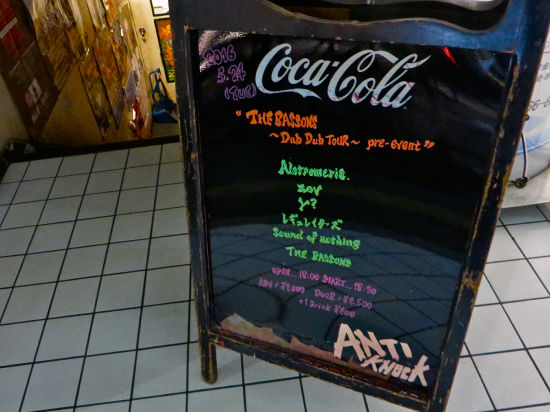 2016
5.24
(TUE)
Coca-Cola
"THE BASSONS
~Dub Dub TOUR~ pre-event"
Alstromeria
zov
y?
レギュレイターズ
Sound of nothing
THE BASSONS
OPEN...18:00 START...18:30
ADV/¥2,000 DOOR/¥2,500
+1 Drink ¥600
ANTI
KNOCK